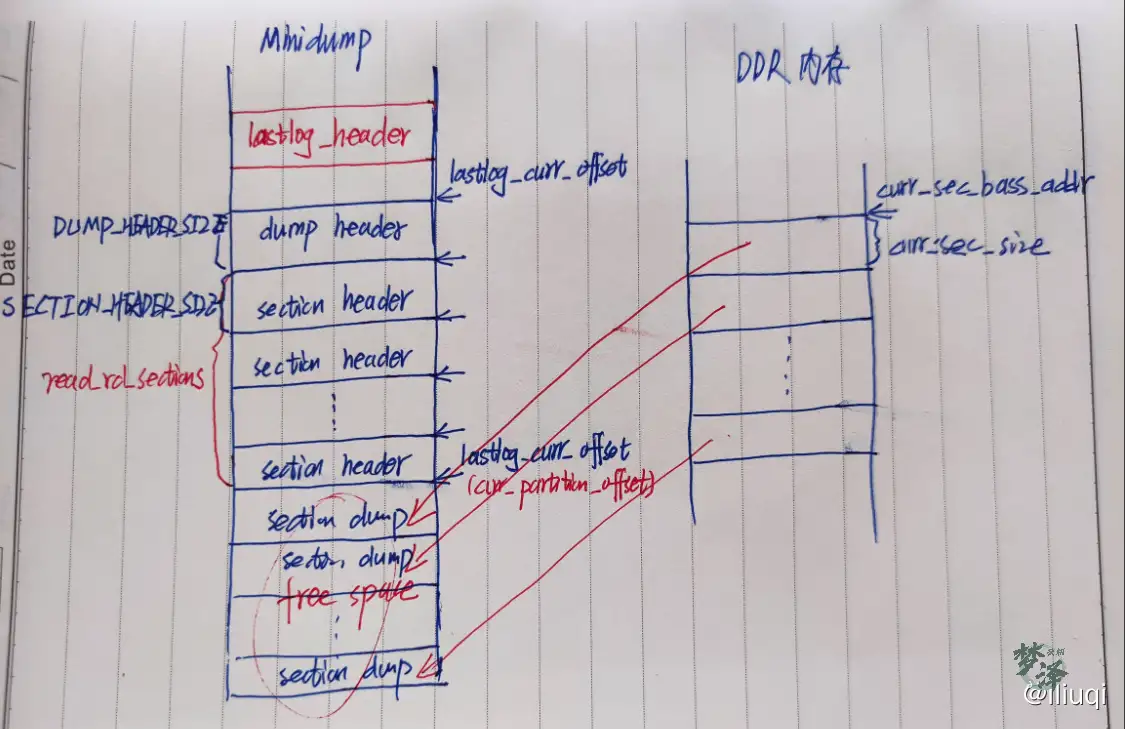 Minidump
DDR 内存
lastlog_header
lastlog_curr_offset
curr_sec_bass_addr
DUMP_HEADER_SIZE
dump header
curr_sec_size
SECTION_HEADER_SIZE
section header
section header
read_rd_sections
section header
lastlog_curr_offset
(curr_partition_offset)
section dump
section dump
free space
section dump
Date
梦泽
@iliuqi